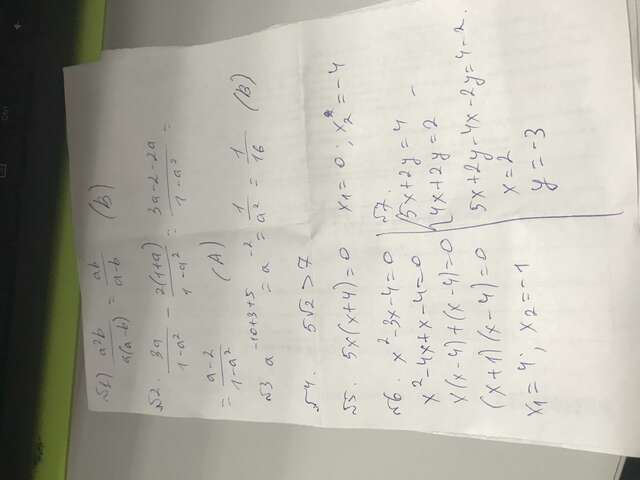 №1) a²b/a(a-b) = ab/a-b (B)
№2. 3a/1-a² - 2(1+a)/1-a² = 3a-2-2a/1-a² =
= a-2/1-a² (A)
№3 a^-10+3+5 = a^-2 = 1/a² = 1/16 (B)
№4. 5√2 > 7
№5. 5x(x+4)=0 x₁=0; x₂=-4
№6. x²-3x-4=0
x²-4x+x-4=0
x(x-4)+(x-4)=0
(x+1)(x-4)=0
x₁=4; x₂=-1
№7.
{5x+2y=4 -
{4x+2y=2
5x+2y-4x-2y=4-2
x=2
y=-3